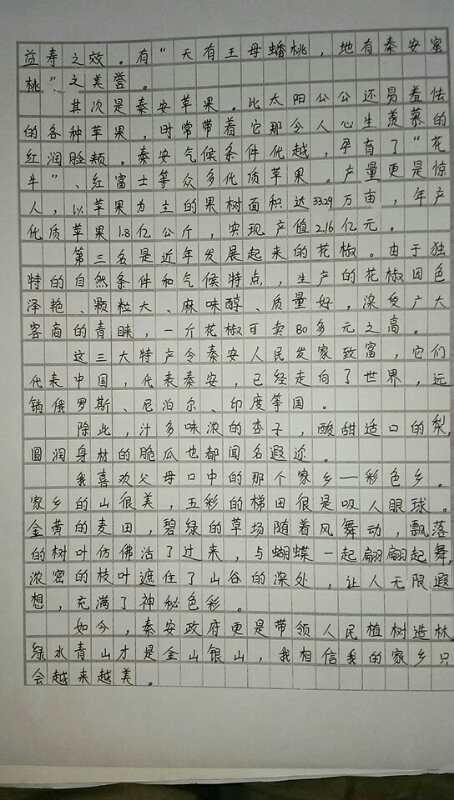 益寿之效。有“天有王母蟠桃，地有秦安蜜
桃”之美誉。
其次是秦安苹果。比太阳公公还易羞怯
的各种苹果，时常带着它那令人心生羡慕的
红润脸颊。秦安气候条件优越，孕育了“花
牛”、红富士等众多优质苹果。产量更是惊
人，以苹果为主的果树面积达33.29万亩，年产
优质苹果1.8亿公斤，实现产值2.16亿元。
第三名是近年发展起来的花椒。由于独
特的自然条件和气候特点，生产的花椒因色
泽艳、颗粒大、麻味醇、质量好，深受广大
客商的青睐，一斤花椒可卖80多元之高。
这三大特产令秦安人民发家致富，它们
代表中国，代表秦安，已经走向了世界，远
销俄罗斯、尼泊尔、印度等国。
除此，汁多味浓的杏子，酸甜适口的梨，
圆润身材的脆瓜也都闻名遐迩。
我喜欢父母口中的那个家乡—彩色乡。
家乡的山很美，五彩的梯田很是吸人眼球。
金黄的麦田，碧绿的草场随着风舞动，飘落
的树叶仿佛活了过来，与蝴蝶一起翩翩起舞，
浓密的枝叶遮住了山谷的深处，让人无限遐
想，充满了神秘色彩。
如今，秦安政府更是带领人民植树造林，
绿水青山才是金山银山，我相信我的家乡只
会越来越美。